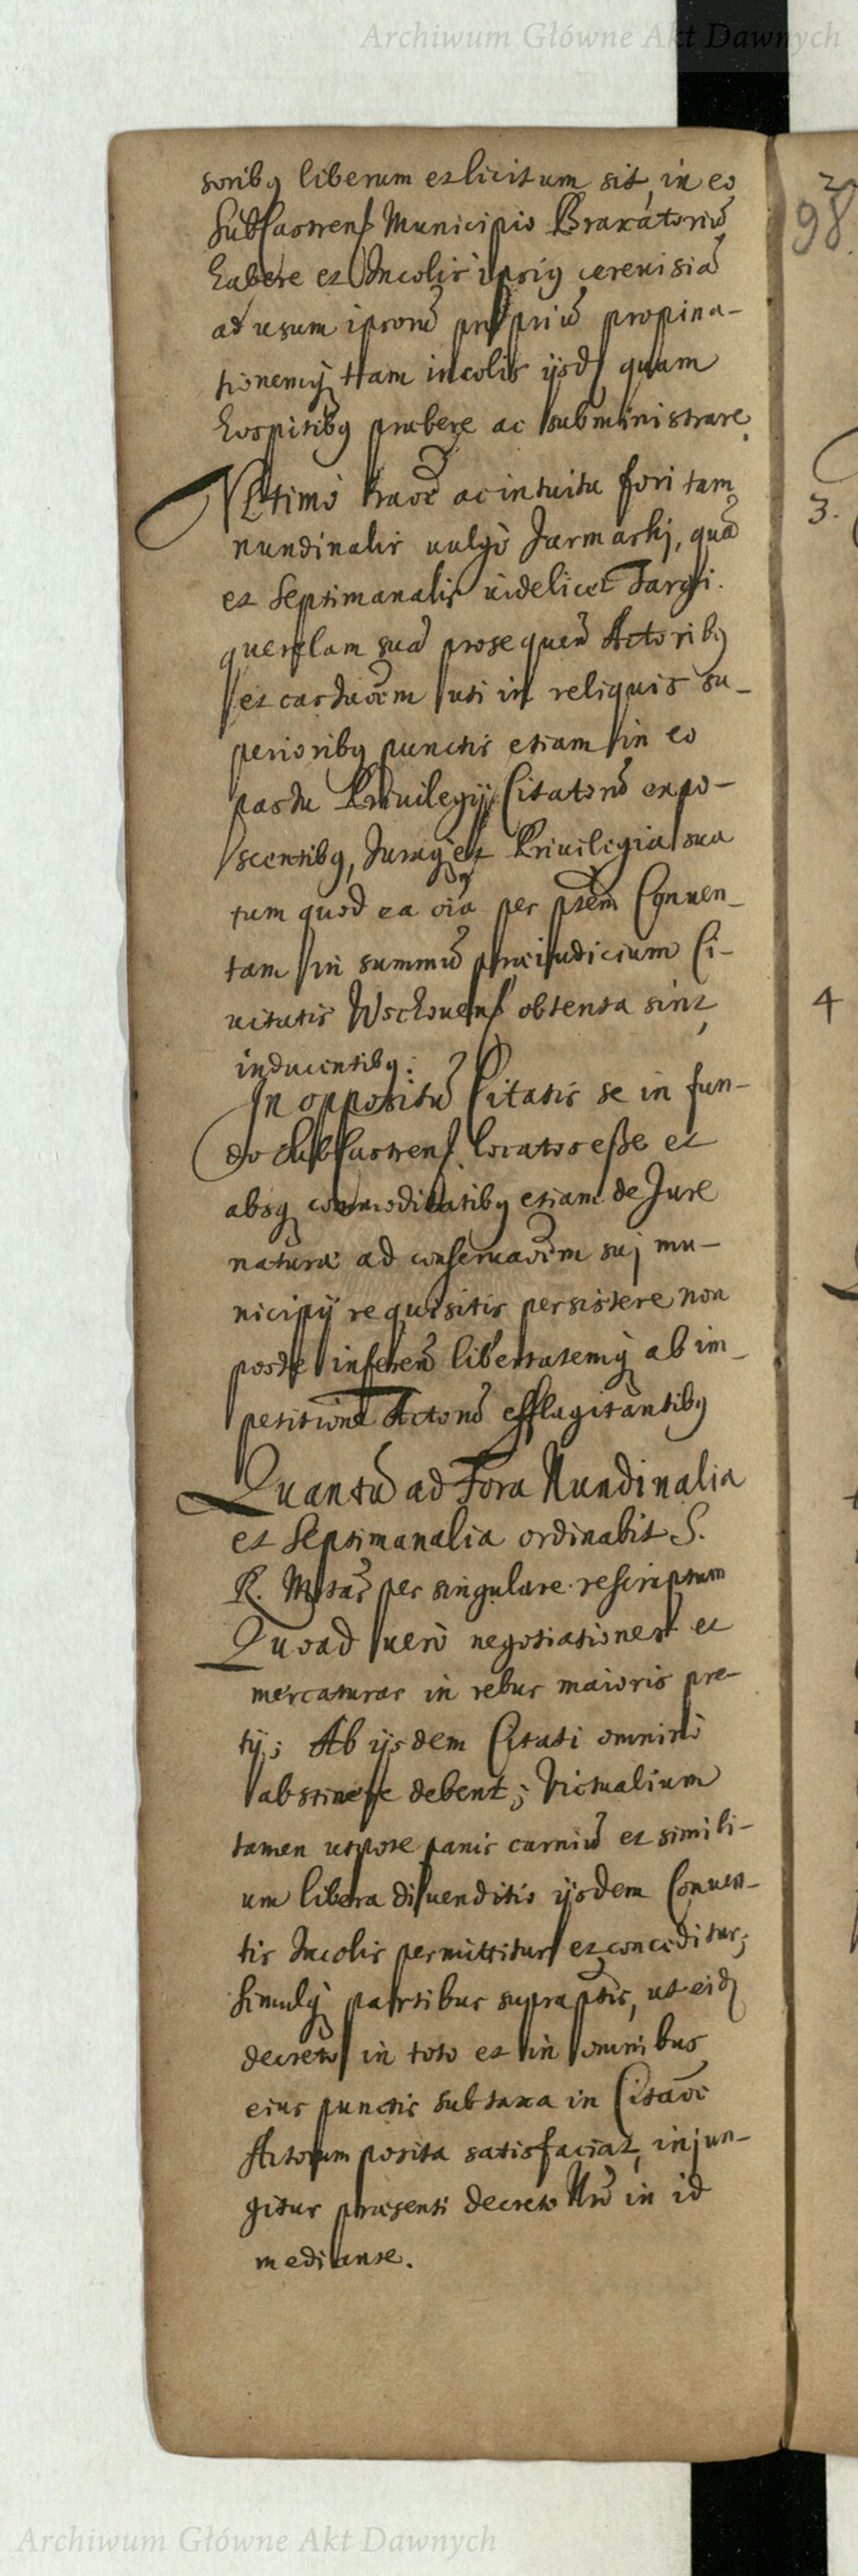 Archiwum Główne Akt Dawnych
soribq liberum et licitum sit, in eo
Subcastrens Municipio Braxatoriũ
habere et Incolis ipsiq cerevisiã
ad usum ipsorũ propriũ propina-
tionemq tam incolis ijsd quam
hospitibq præbere ac subministrare.
Ultimò raõe ac intuitu fori tam
nundinalis vulgò Jarmarki, quã
et Septimanalis videlicet Targi.
querelam suã prosequeñ Actoribq
et castuõem uti in reliquis su-
perioribq punctis etiam in eo
pastu Privilegij Citatorũ expo-
scentibq, Juraq et Privilegia sua
tum quod ea oĩa per ptem Conven-
tam in summũ præiudicium Ci-
vitatis Wschovens obtenta sint,
inducentibq:
In oppositũ Citatis se in fun-
do Subcastrens locatos esse et
absq commoditatibq etiam de Jure
naturæ ad conservaõem suj mu-
nicipij requisitis persistere non
posse inferen libertatemq ab im-
petitione Actorũ efflagitantibq
Quantũ ad Fora Nundinalia
et Septimanalia ordinabit S.
R. Mtas per singulare rescriptum
Quoad verò negotiationes et
mercaturas in rebus maioris pre-
tij; Ab ijsdem Citati omninò
abstinere debent; Victualium
tamen utpote panis carniũ et simili-
um libera divenditio ijsdem Conven-
tis Incolis permittitur et conceditur;
Simulq partibus supraptis, ut eid
decreto in toto et in omnibus
eius punctis sub taxa in Citaõe
Actorum posita satisfaciat, injun-
gitur præsenti decreto Nrõ in id
mediante.
2
98.
3.
4
Archiwum Główne Akt Dawnych